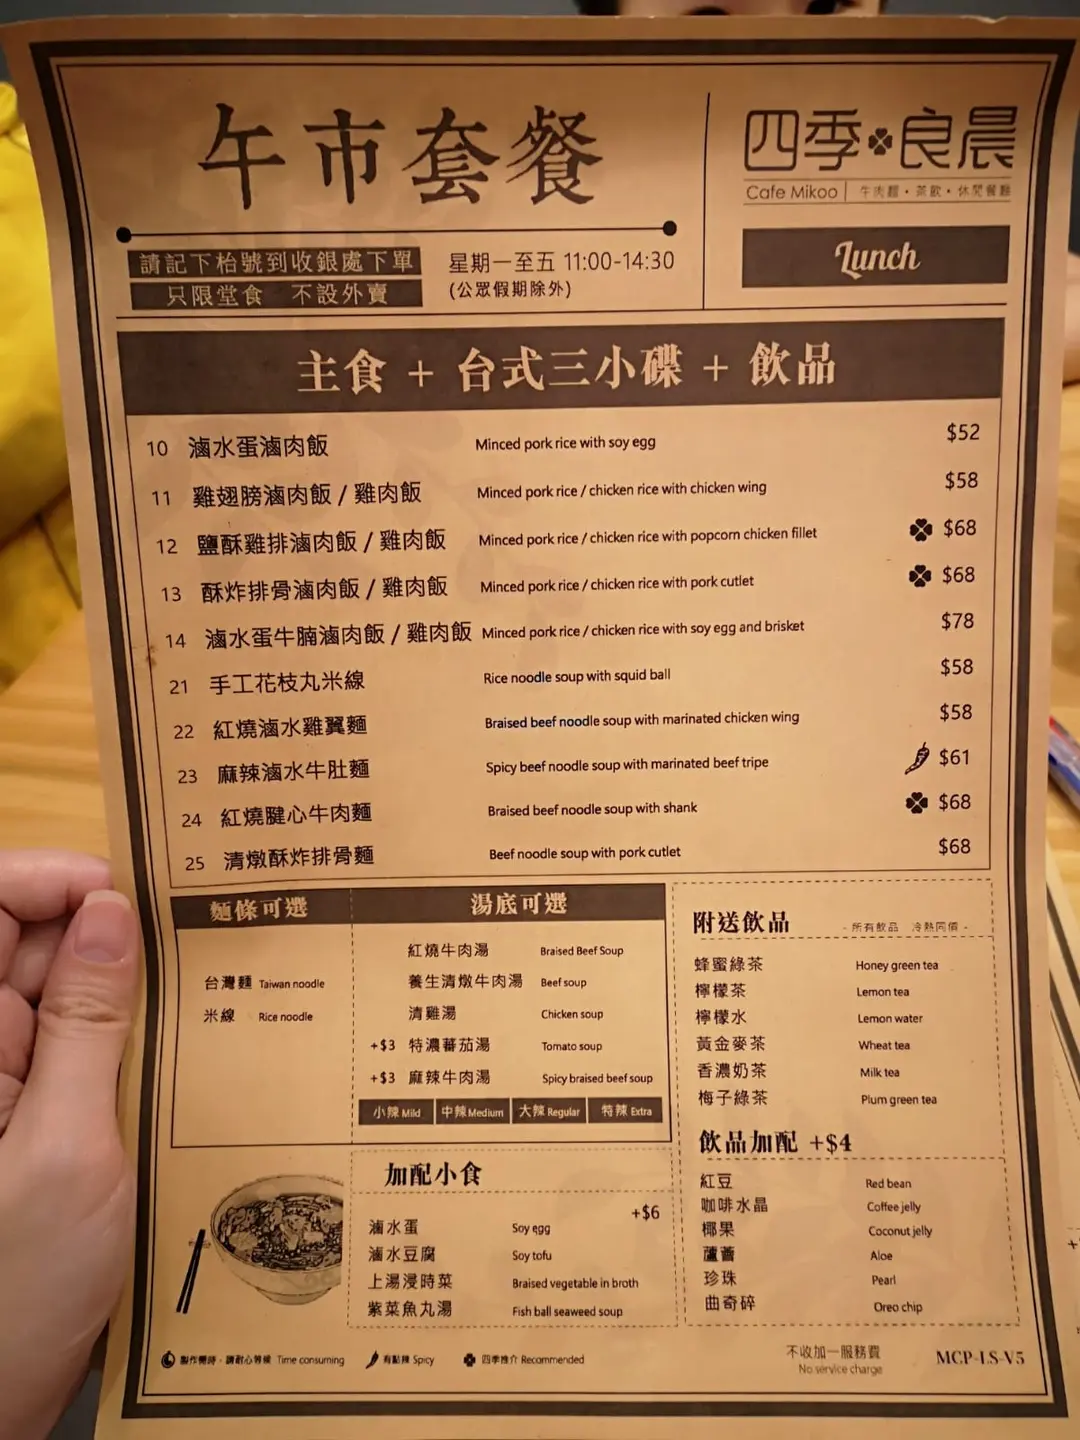 午市套餐
四季良晨
Cafe Mikoo | 牛肉麵・茶飲・休閒餐廳
請記下枱號到收銀處下單
只限堂食 不設外賣
星期一至五 11:00-14:30
(公眾假期除外)
Lunch
主食 + 台式三小碟 + 飲品
10 滷水蛋滷肉飯 Minced pork rice with soy egg $52
11 雞翅膀滷肉飯 / 雞肉飯 Minced pork rice / chicken rice with chicken wing $58
12 鹽酥雞排滷肉飯 / 雞肉飯 Minced pork rice / chicken rice with popcorn chicken fillet $68
13 酥炸排骨滷肉飯 / 雞肉飯 Minced pork rice / chicken rice with pork cutlet $68
14 滷水蛋牛腩滷肉飯 / 雞肉飯 Minced pork rice / chicken rice with soy egg and brisket $78
21 手工花枝丸米線 Rice noodle soup with squid ball $58
22 紅燒滷水雞翼麵 Braised beef noodle soup with marinated chicken wing $58
23 麻辣滷水牛肚麵 Spicy beef noodle soup with marinated beef tripe $61
24 紅燒腱心牛肉麵 Braised beef noodle soup with shank $68
25 清燉酥炸排骨麵 Beef noodle soup with pork cutlet $68
麵條可選
台灣麵 Taiwan noodle
米線 Rice noodle
湯底可選
紅燒牛肉湯 Braised Beef Soup
養生清燉牛肉湯 Beef soup
清雞湯 Chicken soup
+$3 特濃蕃茄湯 Tomato soup
+$3 麻辣牛肉湯 Spicy braised beef soup
小辣 Mild 中辣 Medium 大辣 Regular 特辣 Extra
附送飲品 - 所有飲品 冷熱同價 -
蜂蜜綠茶 Honey green tea
檸檬茶 Lemon tea
檸檬水 Lemon water
黃金麥茶 Wheat tea
香濃奶茶 Milk tea
梅子綠茶 Plum green tea
飲品加配 +$4
紅豆 Red bean
咖啡水晶 Coffee jelly
椰果 Coconut jelly
蘆薈 Aloe
珍珠 Pearl
曲奇碎 Oreo chip
加配小食
+$6
滷水蛋 Soy egg
滷水豆腐 Soy tofu
上湯浸時菜 Braised vegetable in broth
紫菜魚丸湯 Fish ball seaweed soup
製作需時，請耐心等候 Time consuming
有點辣 Spicy
四季推介 Recommended
不收加一服務費
No service charge
MCP-LS-V5